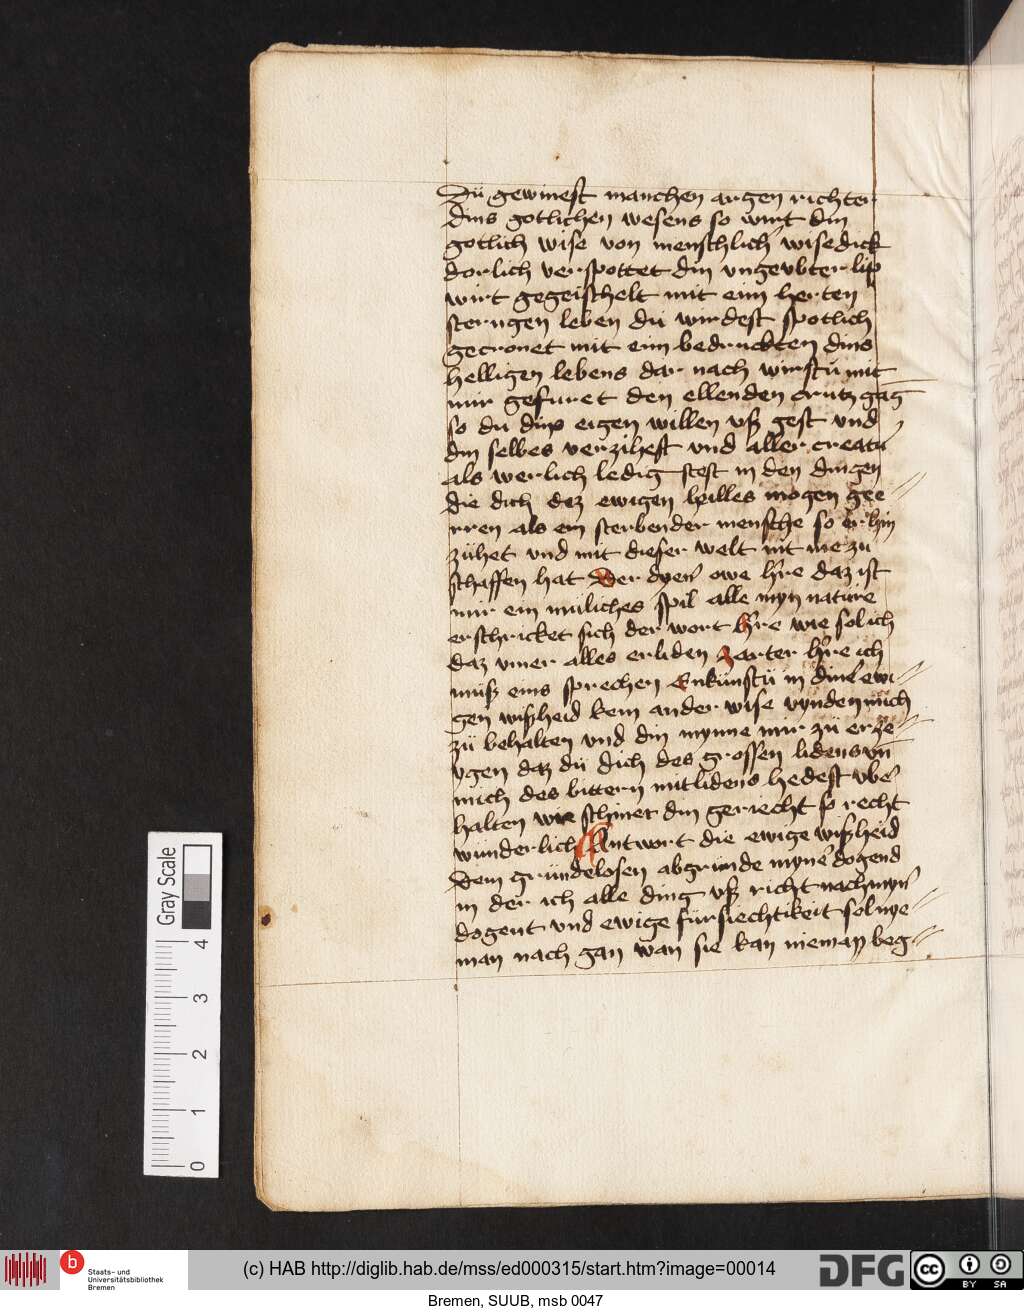 Dü gewinest manchen argen richter
dins gotlichen wesens so wirt din
gotlich wise von menschlich wise dick
dorlich verspottet din vngeubter lip
wirt gegeischelt mit eim herten
strengen leben dü wirdest spotlich
gecronet mit eim bedruckten dins
helligen lebens dar nach wirstu mit
mir gefuret den ellenden crutz gāg
so du dins eigen willen vß gest vnd
din selbes verzihest vnd aller creatu
als werlich ledig stest in den dingen
die dich daz ewigen heilles mogen gee
rren als ein sterbender mensche so er hin
zühet vnd mit dieser welt nit me zü
schaffen hat Der dyen owe h're daz ist
mir ein müliches spil alle myn nature
erschricket sich der wort H're wie sol ich
daz vmer alles erliden Zarter h're ich
müß eins sprechen Enkünstu in din' ewi
gen wißheid kein ander wise vynden mich
zü behalten vnd din mynne mir zü erze
ygen daz dü dich des grossen lidens vn̄
mich des bittern mitlidens hedest vbe'
halten wie schinet din geriecht so recht
wünderlich Antwort die ewige wißheid
Dem gründelosen abgründe myne' dogend
in der ich alle ding vß richt nach myn'
dogent vnd ewige fürsiechtikeit sol nye
man nach gan wan sie kan nieman beg
Gray Scale
0 1 2 3 4
b Staats- und
Universitätsbibliothek
Bremen
(c) HAB http://diglib.hab.de/mss/ed000315/start.htm?image=00014
DFG
cc BY SA
Bremen, SUUB, msb 0047